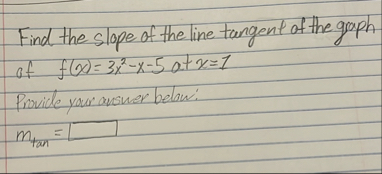 Find the slope of the line tangent of the graph
of f(x) = 3x² - x - 5 at x = 1
Provide your answer below:
m_tan =